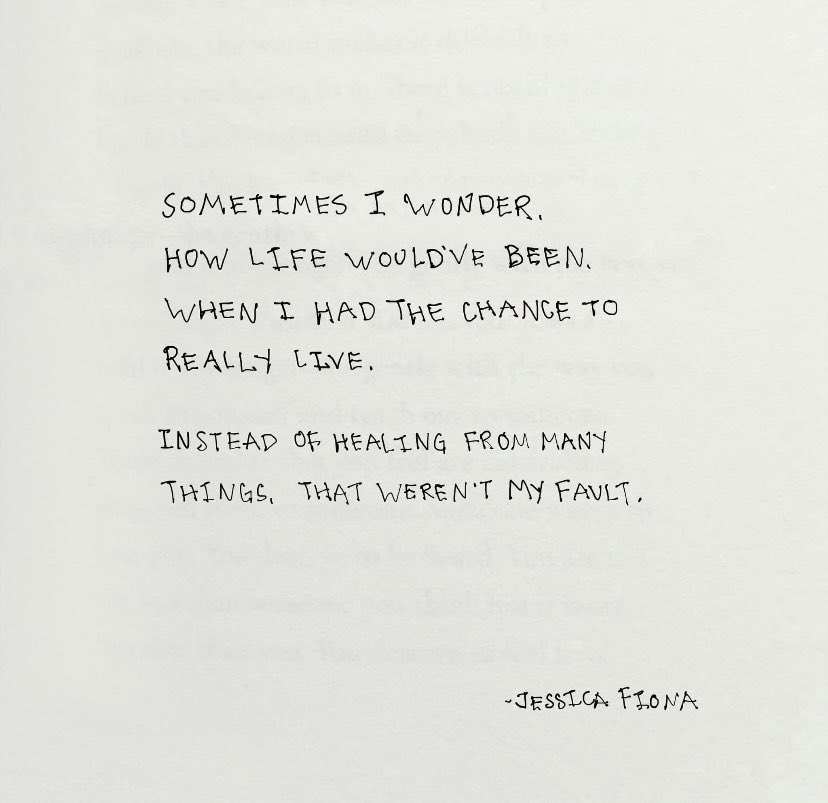 SOMETIMES I WONDER,
HOW LIFE WOULD'VE BEEN,
WHEN I HAD THE CHANCE TO
REALLY LIVE.
INSTEAD OF HEALING FROM MANY
THINGS, THAT WEREN'T MY FAULT.
-JESSICA FIONA